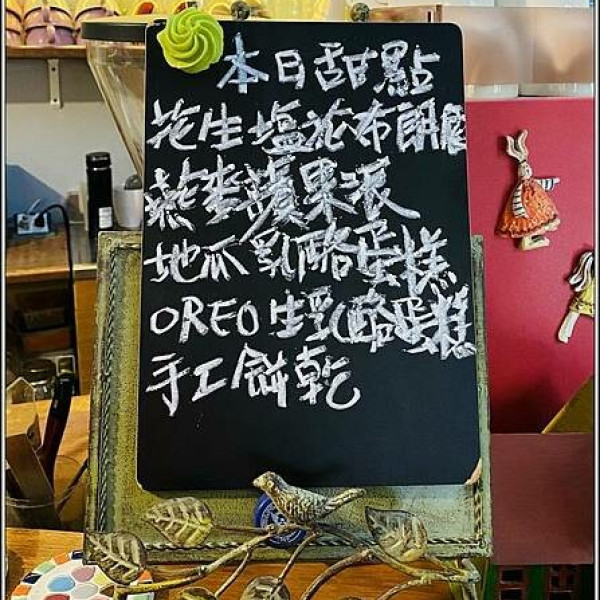 本日甜點
花生塩花布朗尼
燕麥蘋果派
地瓜乳酪蛋糕
OREO生乳酪蛋糕
手工餅乾